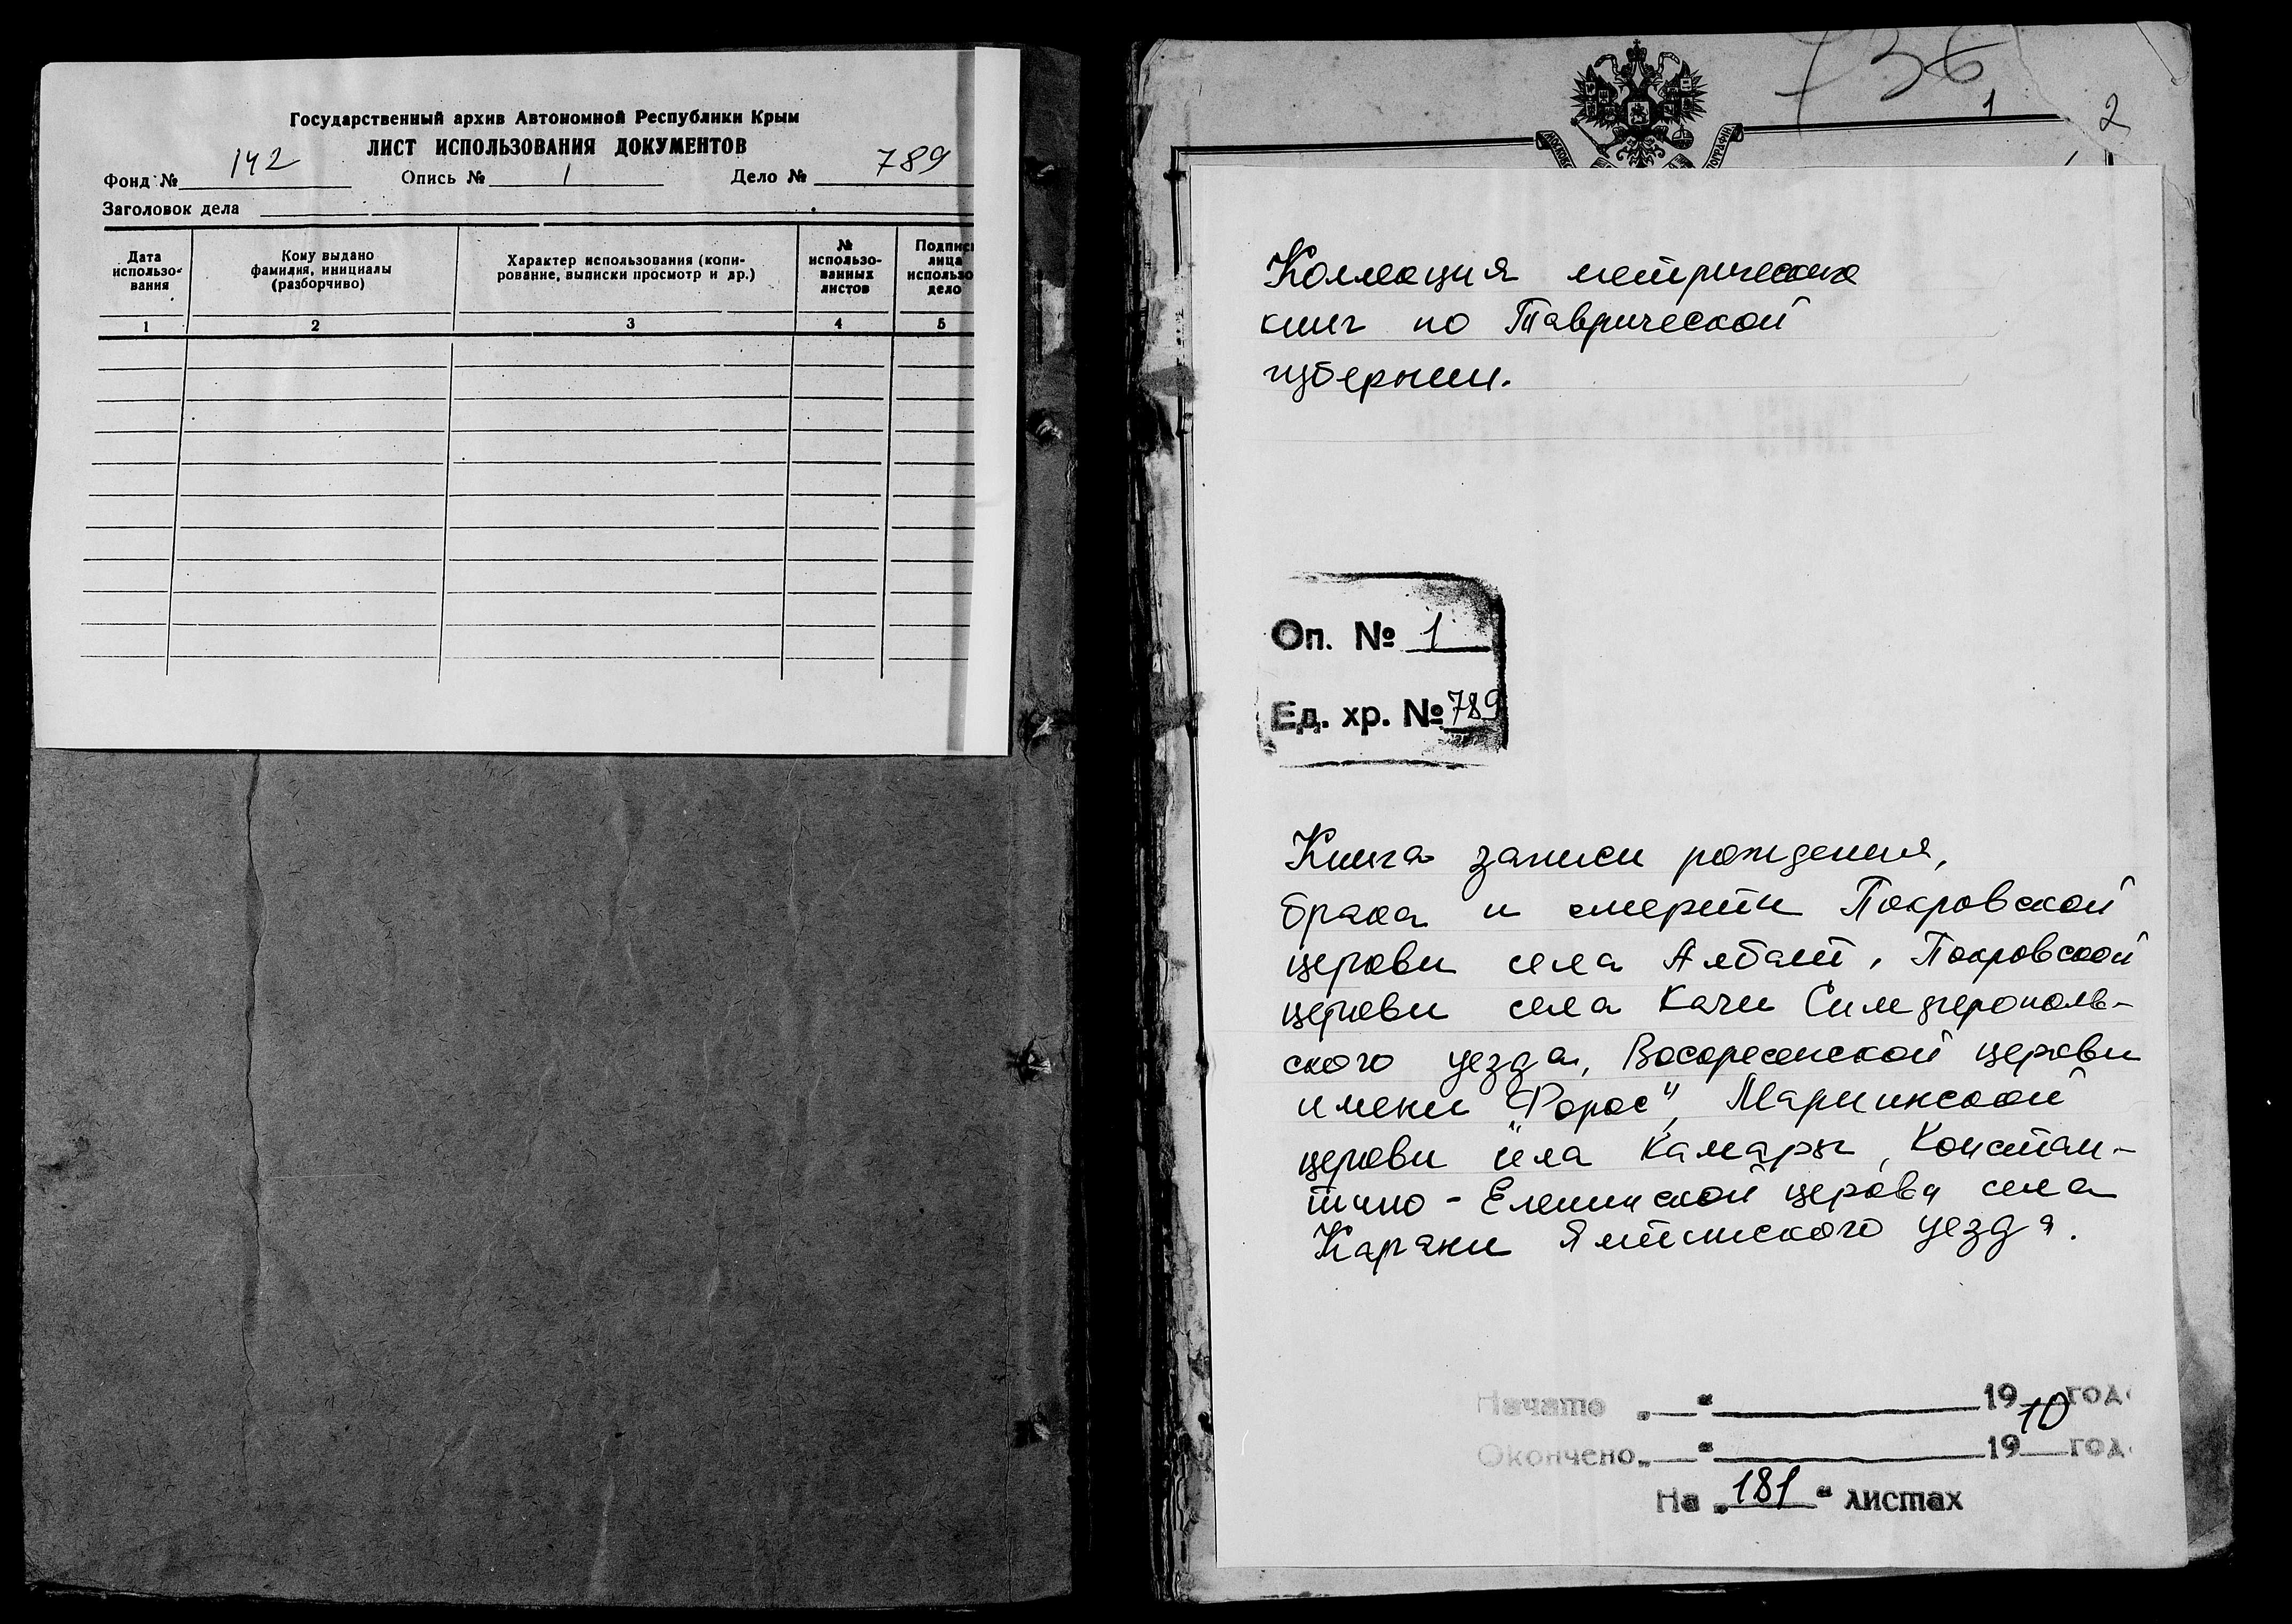 Государственный архив Автономной Республики Крым
ЛИСТ ИСПОЛЬЗОВАНИЯ ДОКУМЕНТОВ
Фонд № 142 Опись № 1 Дело № 789
Заголовок дела
Дата использо-вания
Кому выдано фамилия, инициалы (разборчиво)
Характер использования (копи-рование, выписки просмотр и др.)
№ использо-ванных листов
Подпис лица использо дело
1 2 3 4 5
736
1
2
Коллекция метрических
книг по Таврической
губернии.
Оп. № 1
Ед. хр. № 789
Книга записи рождения,
брака и смерти Покровской
церкви села Албат, Покровской
церкви села Качи Симферополь-
ского уезда, Воскресенской церкви
имени "Форос", Мариинской
церкви села Камары, Констан-
тино-Еленинской церкви села
Карани Ялтинского уезда.
Начато „ “ 19 10 год
Окончено „ “ 19 год
На „181“ листах